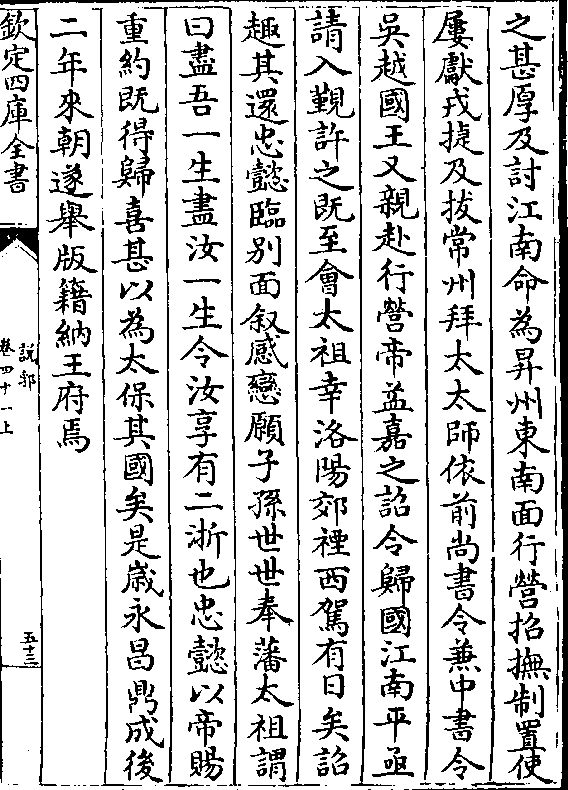 之甚厚及討江南命為昇州東南面行營招撫制置使
屢獻戎捷及拔常州拜太太師依前尚書令兼中書令
吳越國王又親赴行營帝益嘉之詔令歸國江南平亟
請入覲許之既至會太祖幸洛陽郊禋西駕有日矣詔
趣其還忠懿臨別面叙感戀願子孫世世奉藩太祖謂
曰盡吾一生盡汝一生令汝享有二浙也忠懿以帝賜
重約既得歸喜甚以為太保其國矣是歳永昌鼎成後
二年來朝遂舉版籍納王府焉
欽定四庫全書
說郛
卷四十一上
五十三